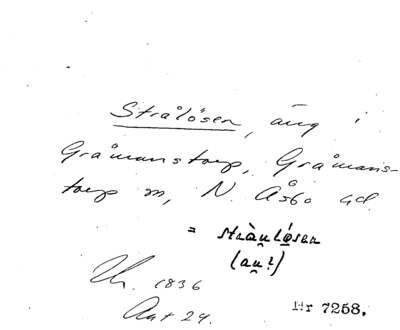 Strålösen, äng i
Gråmanstorp, Gråmans-
torp sn, N. Åsbo hd.
= stràu̯lǿsen
(au̯?)
1836
Akt 24.
Nr 7258.